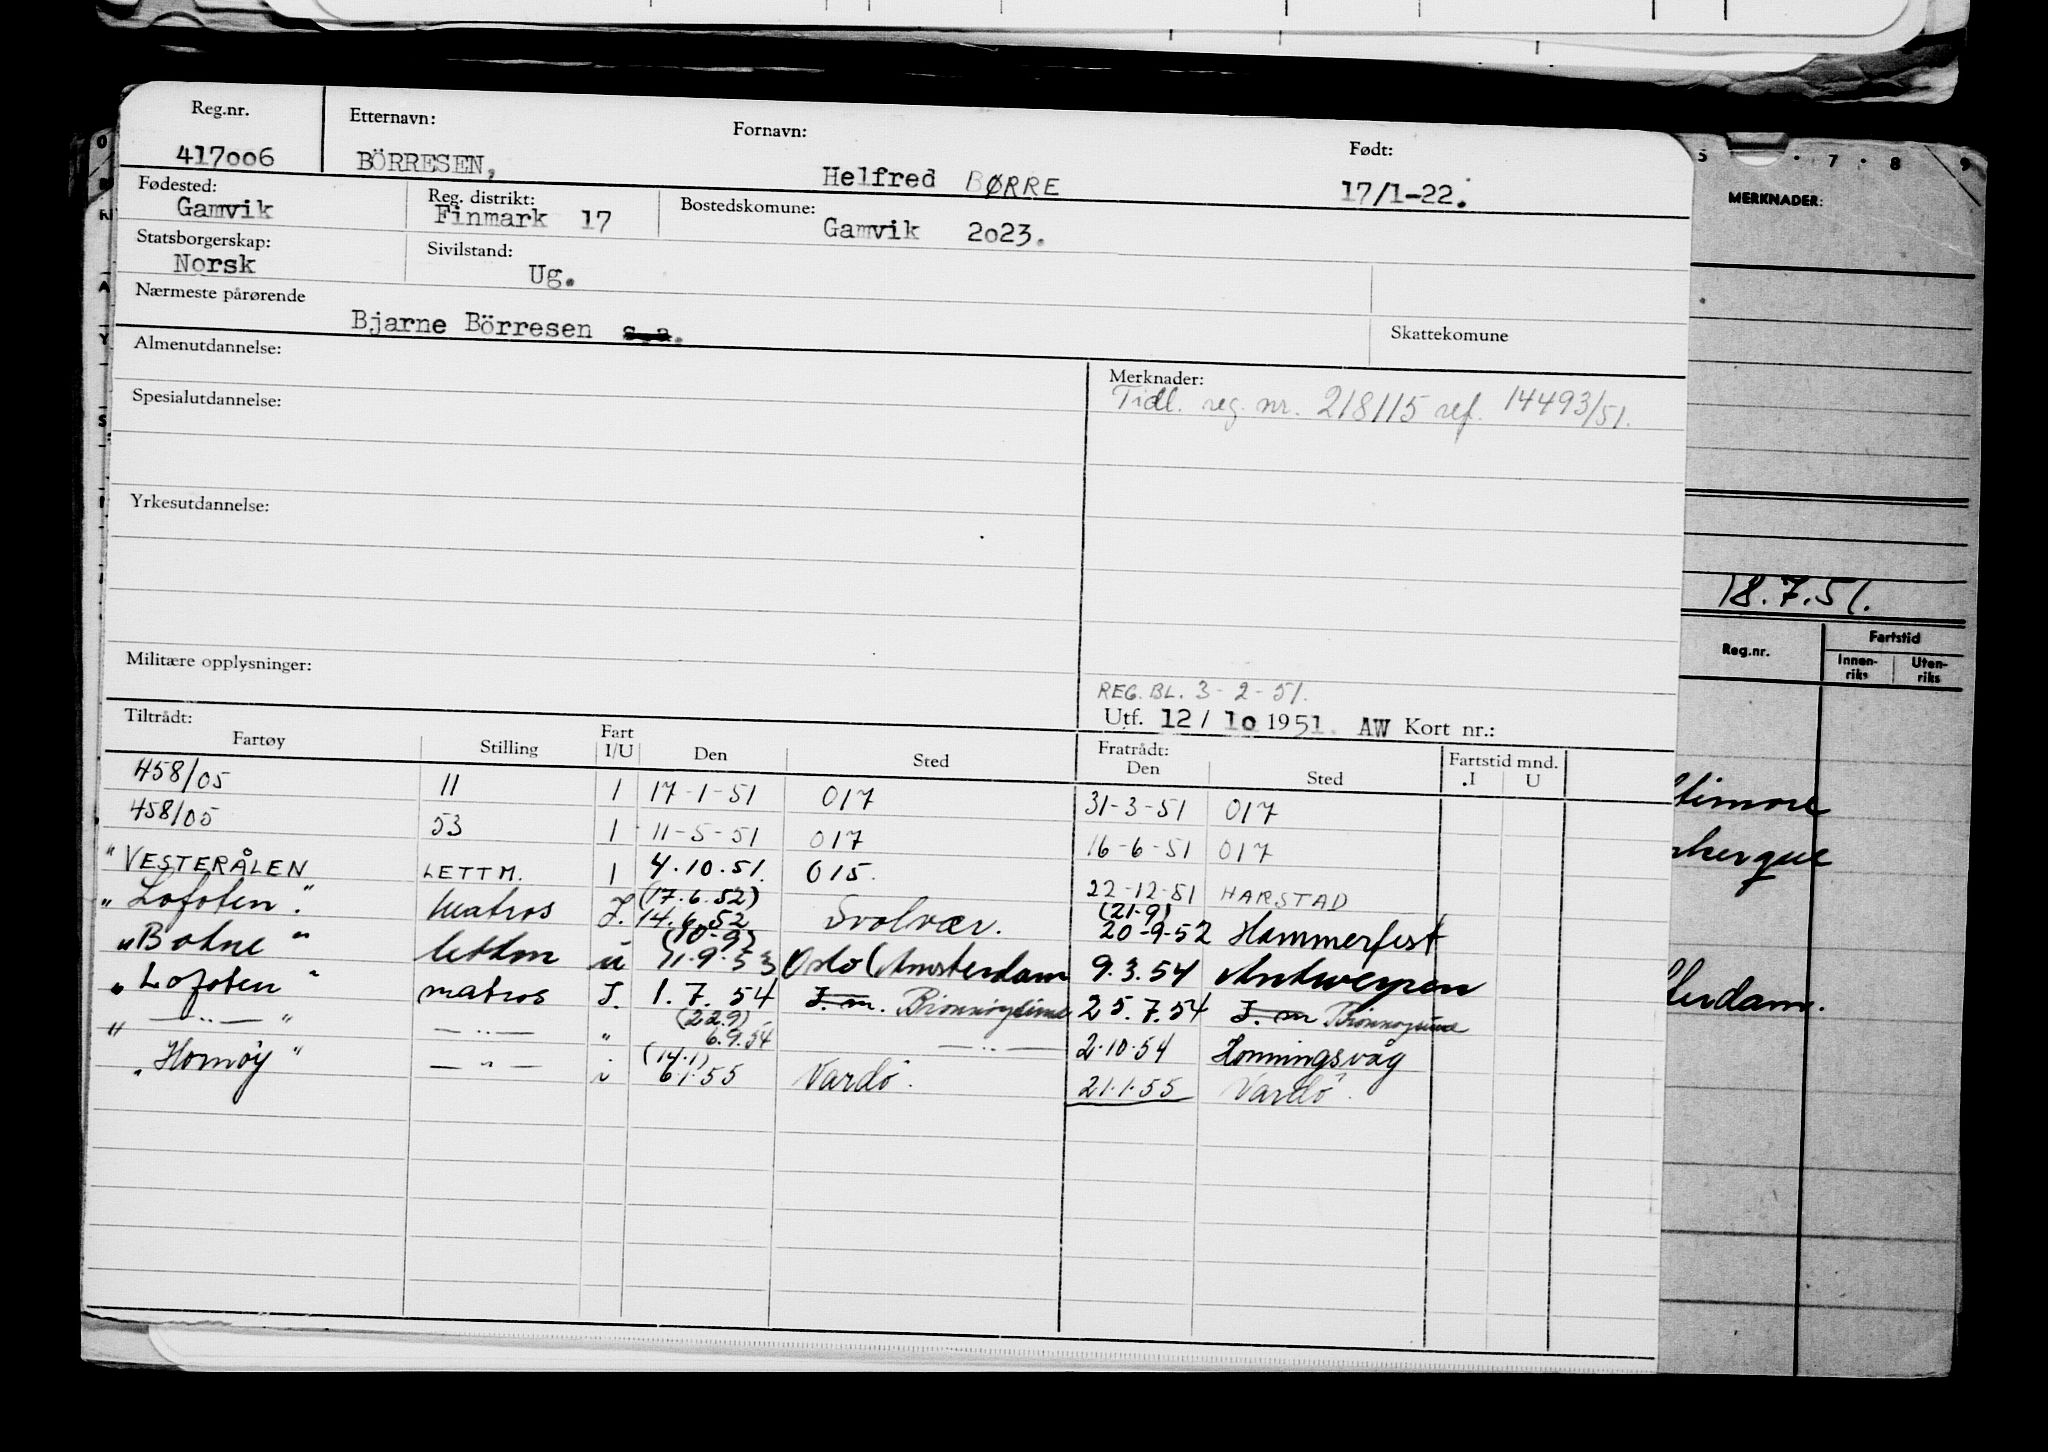 Reg.nr. Etternavn: Fornavn: Født:
417006 BÖRRESEN, Helfred BØRRE 17/1-22.
Fødested: Reg. distrikt: Bostedskomune:
Gamvik Finmark 17 Gamvik 2023.
Statsborgerskap: Sivilstand:
Norsk Ug.
Nærmeste pårørende
Bjarne Börresen s.a. Skattekomune
Almenutdannelse: Merknader:
Tidl. reg. nr. 218115 ref. 14493/51.
Spesialutdannelse:
Yrkesutdannelse:
Militære opplysninger:
REG. BL. 3-2-51.
Utf. 12/10 1951. AW Kort nr.:
Tiltrådt: Fratrådt: Fartstid mnd.
Fartøy Stilling Fart I/U Den Sted Den Sted .I U
458/05 11 1 17-1-51 017 31-3-51 017
458/05 53 1 11-5-51 017 16-6-51 017
"VESTERÅLEN LETTM. 1 4.10.51. 015. 22-12-51 HARSTAD
(17.6.52) (21-9)
"Lofoten". Matros I. 14.6.52 Svolvær. 20-9-52 Hammerfest
(10-9)
"Bohne" lettm u 11.9.53 Oslo (Amsterdam 9.3.54 Antwerpen
"Lofoten" matros I. 1.7.54 I.m. Brønnøysund 25.7.54 I.m Brønnøysund
(22.9)
" —..— " —..— " 6.9.54 —..— 2.10.54 Honningsvåg
(14.1)
"Hornøy" —"— i 6.1.55 Vardö. 21.1.55 Vardö.
5 . 7 . 8 9
MERKNADER:
18.7.51.
Reg.nr. Fartstid
Innen-riks Uten-riks
ltimore
rkerque
terdam.